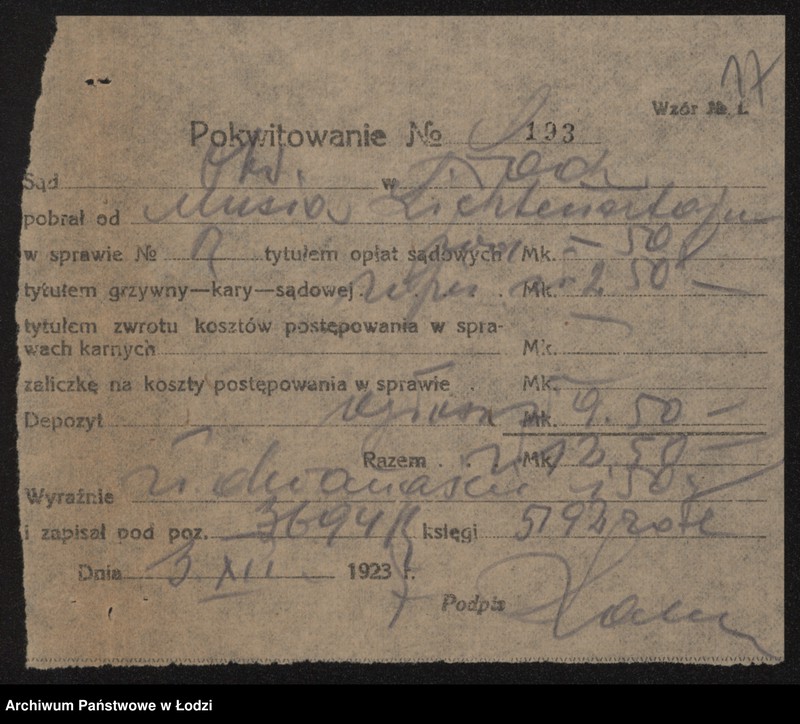 17
Wzór № 1.
Pokwitowanie № 193
Sąd Okr. w Łodzi
pobrał od Lichtensztajn
w sprawie № tytułem opłat sądowych Mk. – 50
tytułem grzywny—kary—sądowej Mk. 2 50 –
tytułem zwrotu kosztów postępowania w spra-
wach karnych Mk.
zaliczkę na koszty postępowania w sprawie . Mk.
Depozyt Mk. 9.50 –
Razem . . Mk. 12,50 –
Wyraźnie zł dwanaście i 50 g
i zapisał pod poz. 3694 księgi
Dnia 3 XII 1923 r.
Podpis
Archiwum Państwowe w Łodzi